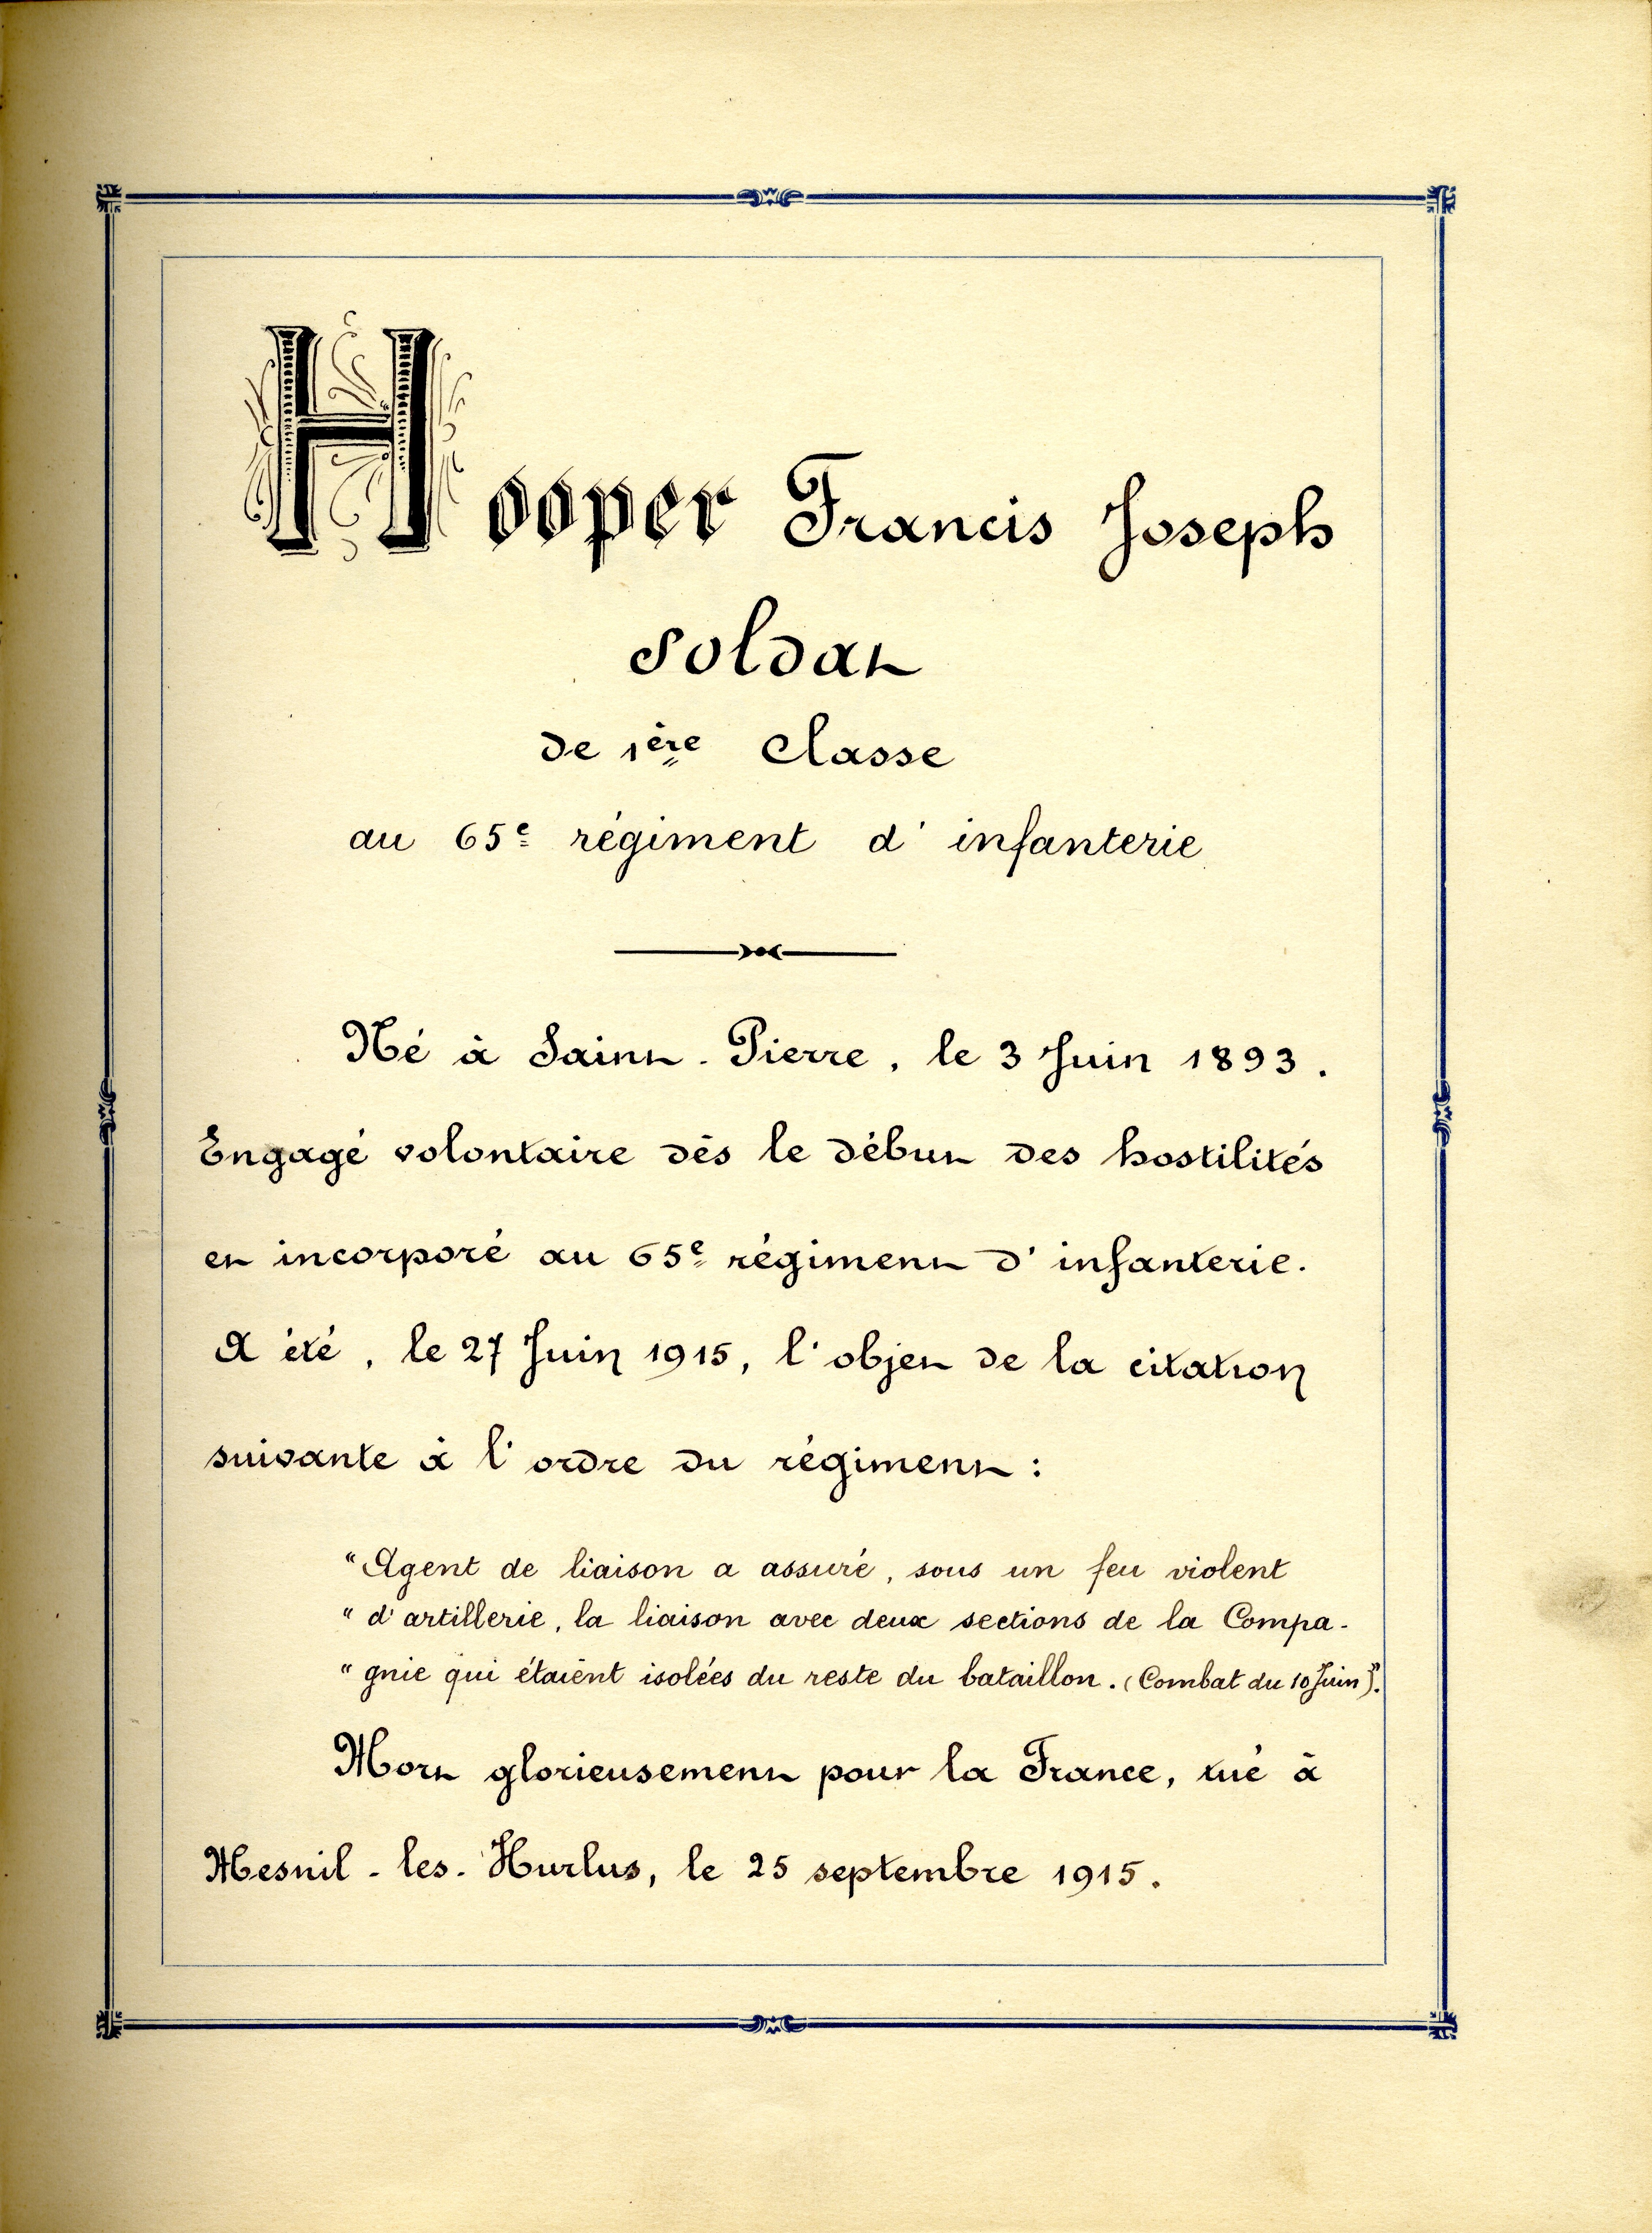 Hooper Francis Joseph
Soldat
de 1ère Classe
au 65e régiment d'infanterie
Né à Saint-Pierre, le 3 Juin 1893.
Engagé volontaire dès le début des hostilités
et incorporé au 65e régiment d'infanterie.
A été, le 27 Juin 1915, l'objet de la citation
suivante à l'ordre du régiment :
"Agent de liaison a assuré, sous un feu violent
"d'artillerie, la liaison avec deux sections de la Compa-
"gnie qui étaient isolées du reste du bataillon. (Combat du 10 Juin)".
Mort glorieusement pour la France, tué à
Mesnil-les-Hurlus, le 25 septembre 1915.